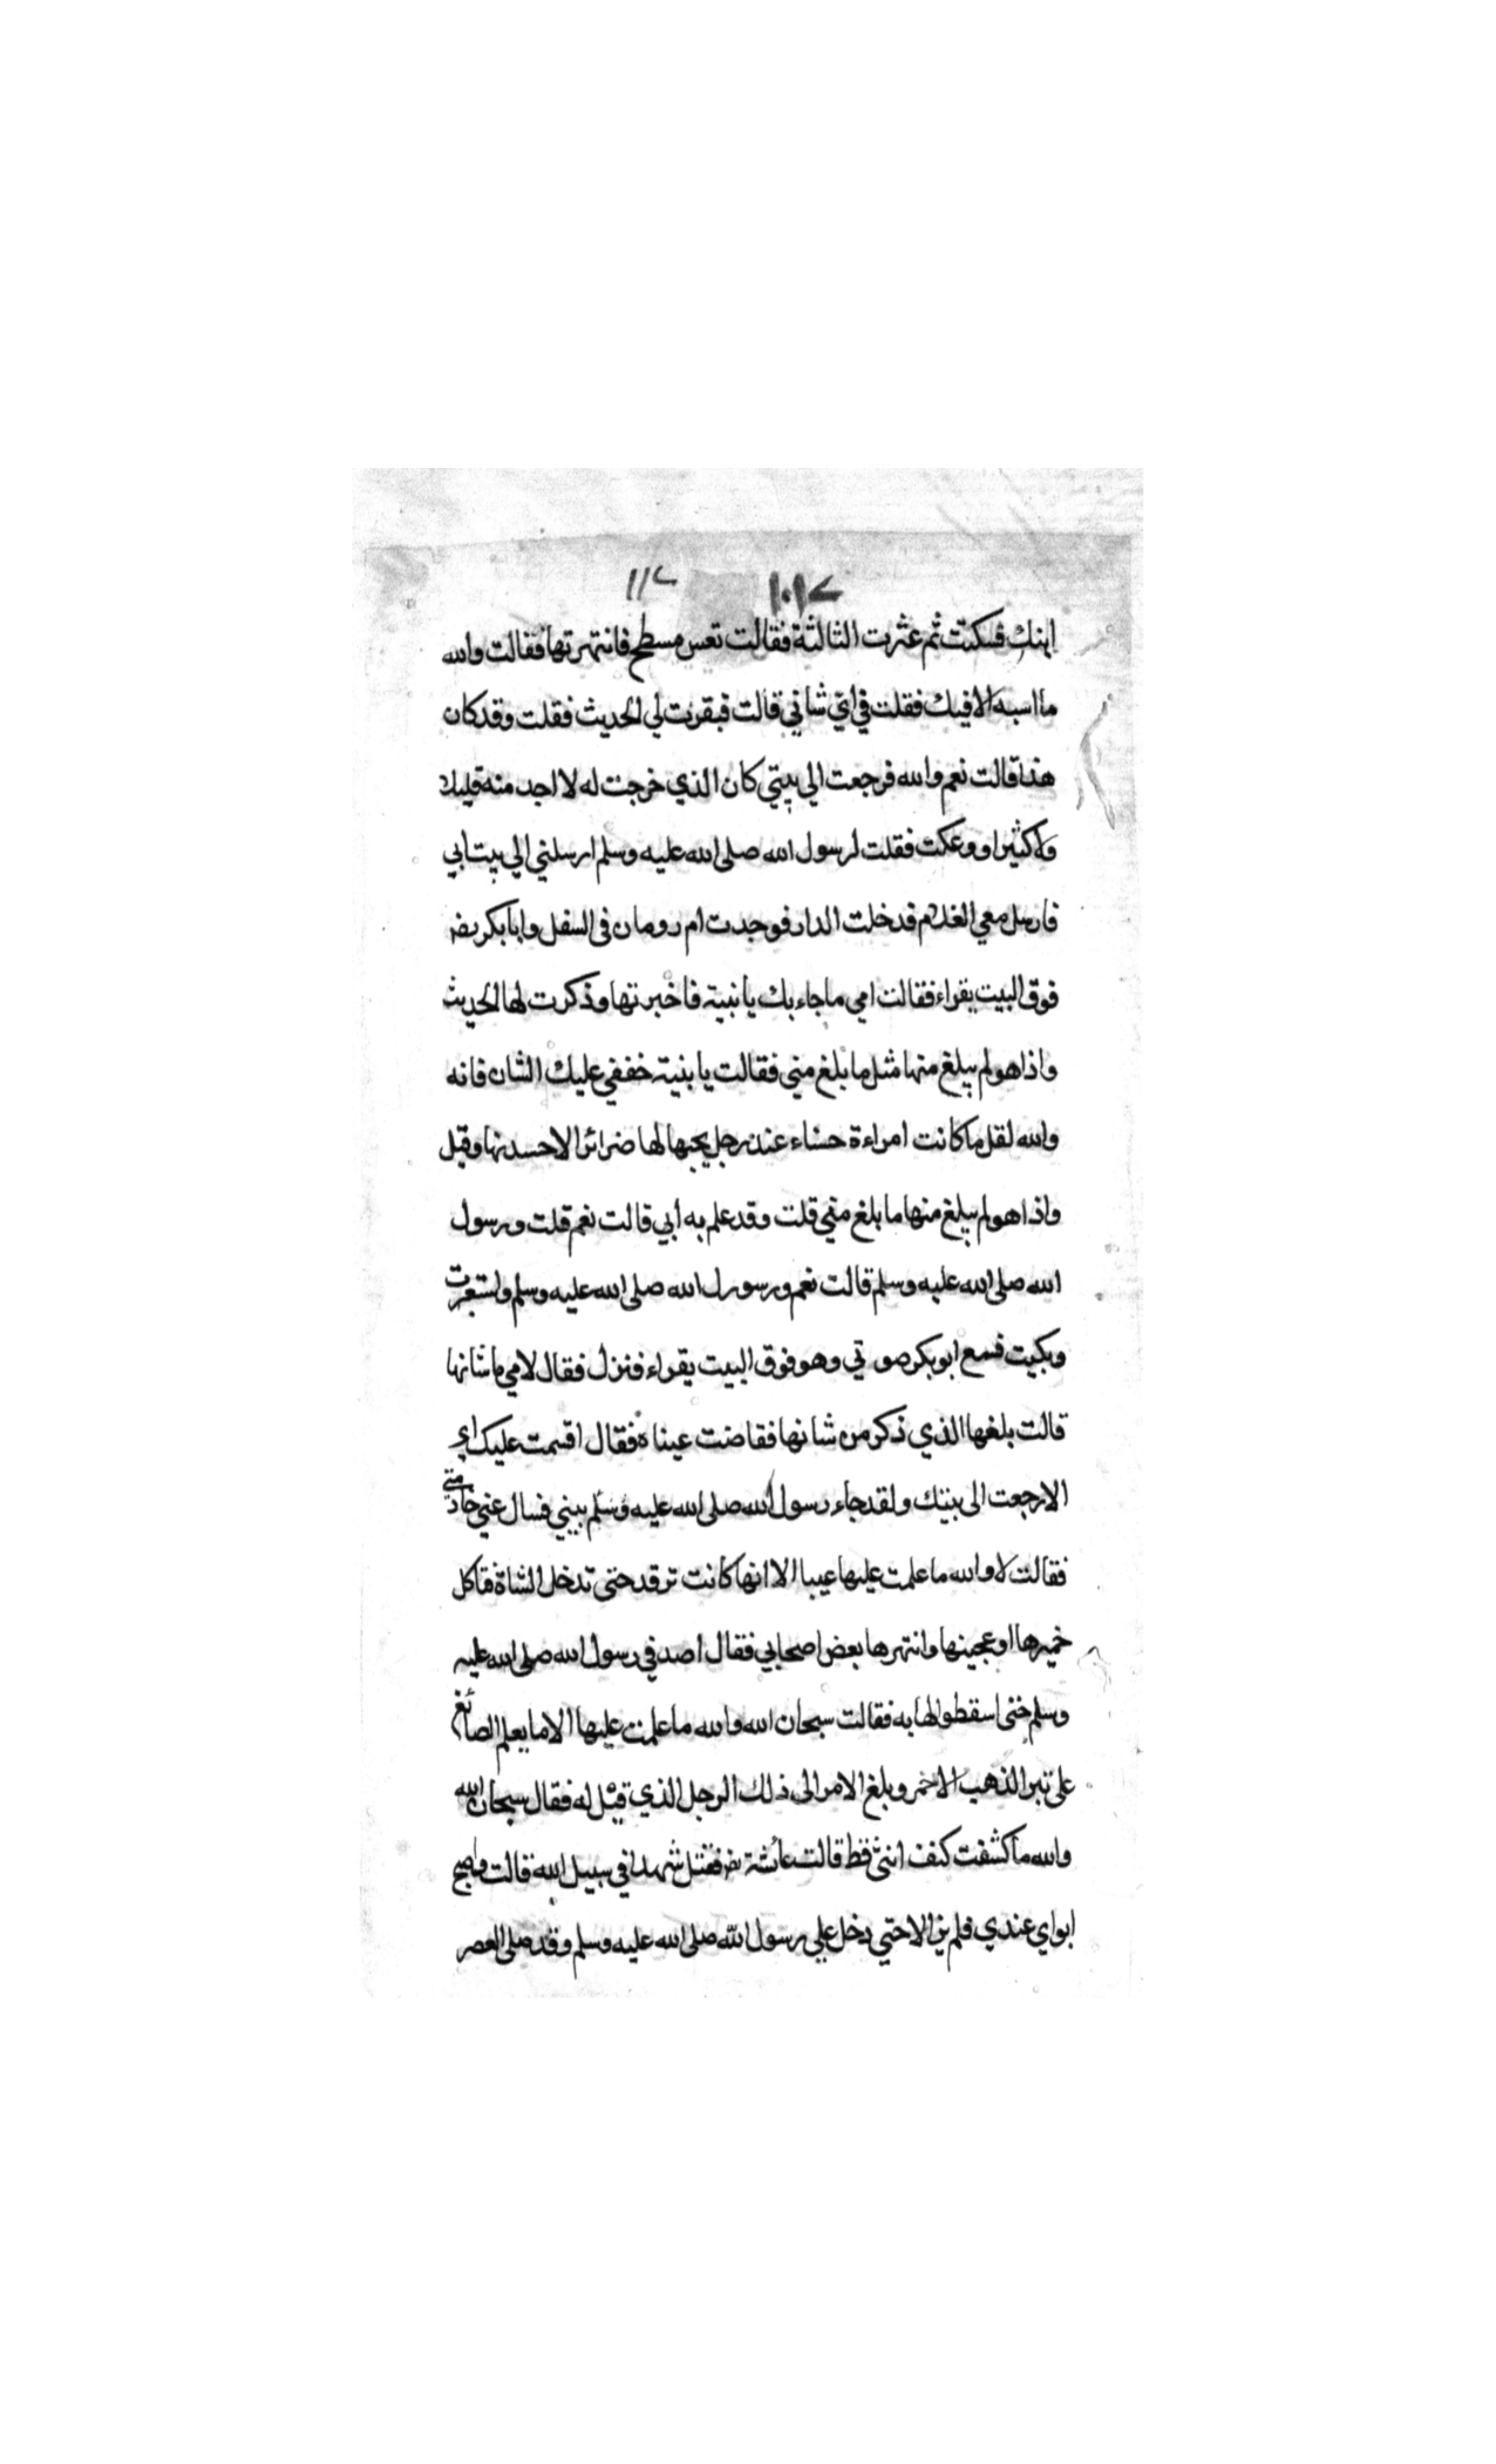 ابنك فسكتت ثم عثرت الثالثة فقالت تعس مسطح فانتهرتها فقالت والله
ما اسبه الا فيك فقلت في اي شاني قالت فبقرت لي الحديث فقلت وقد كان
هذا قالت نعم والله فرجعت الي بيتي كان الذي خرجت له لا اجد منه قليلا
ولا كثيرا ووعكت فقلت لرسول الله صلى الله عليه وسلم ارسلني الي بيت ابي
فارسل معي الغلام فدخلت الدار فوجدت ام رومان في السفل وابا بكر رضه
فوق البيت يقراء فقالت امي ما جاء بك يا بنية فاخبرتها وذكرت لها الحديث
واذا هو لم يبلغ منها مثل ما بلغ مني فقالت يا بنية خففي عليك الشان فانه
والله لقل ما كانت امراءة حسناء عند رجل يحبها لها ضرائر الا حسدنها وقيل
واذا هو لم يبلغ منها ما بلغ مني قلت وقد علم به ابي قالت نعم قلت ورسول
الله صلى الله عليه وسلم قالت نعم ورسول الله صلى الله عليه وسلم واستعبرت
وبكيت فسمع ابو بكر صوتي وهو فوق البيت يقراء فنزل فقال لامي ما شانها
قالت بلغها الذي ذكر من شانها ففاضت عيناه فقال اقسمت عليك اي
الا رجعت الى بيتك ولقد جاء رسول الله صلى الله عليه وسلم بيني فسال عني خادمتي
فقالت لا والله ما علمت عليها عيبا الا انها كانت ترقد حتى تدخل الشاة فتاكل
خميرها او عجينها وانتهرها بعض اصحابي فقال اصدقي رسول الله صلى الله عليه
وسلم حتى اسقطوا لها به فقالت سبحان الله والله ما علمت عليها الا ما يعلم الصائغ
على تبر الذهب الاحمر وبلغ الامر الى ذلك الرجل الذي قيل له فقال سبحان الله
والله ما كشفت كنف انثى قط قالت عائشة رضه فقتل شهيدا في سبيل الله قالت واصبح
ابواي عندي فلم يزالا حتي دخل علي رسول الله صلى الله عليه وسلم وقد صلى العصر